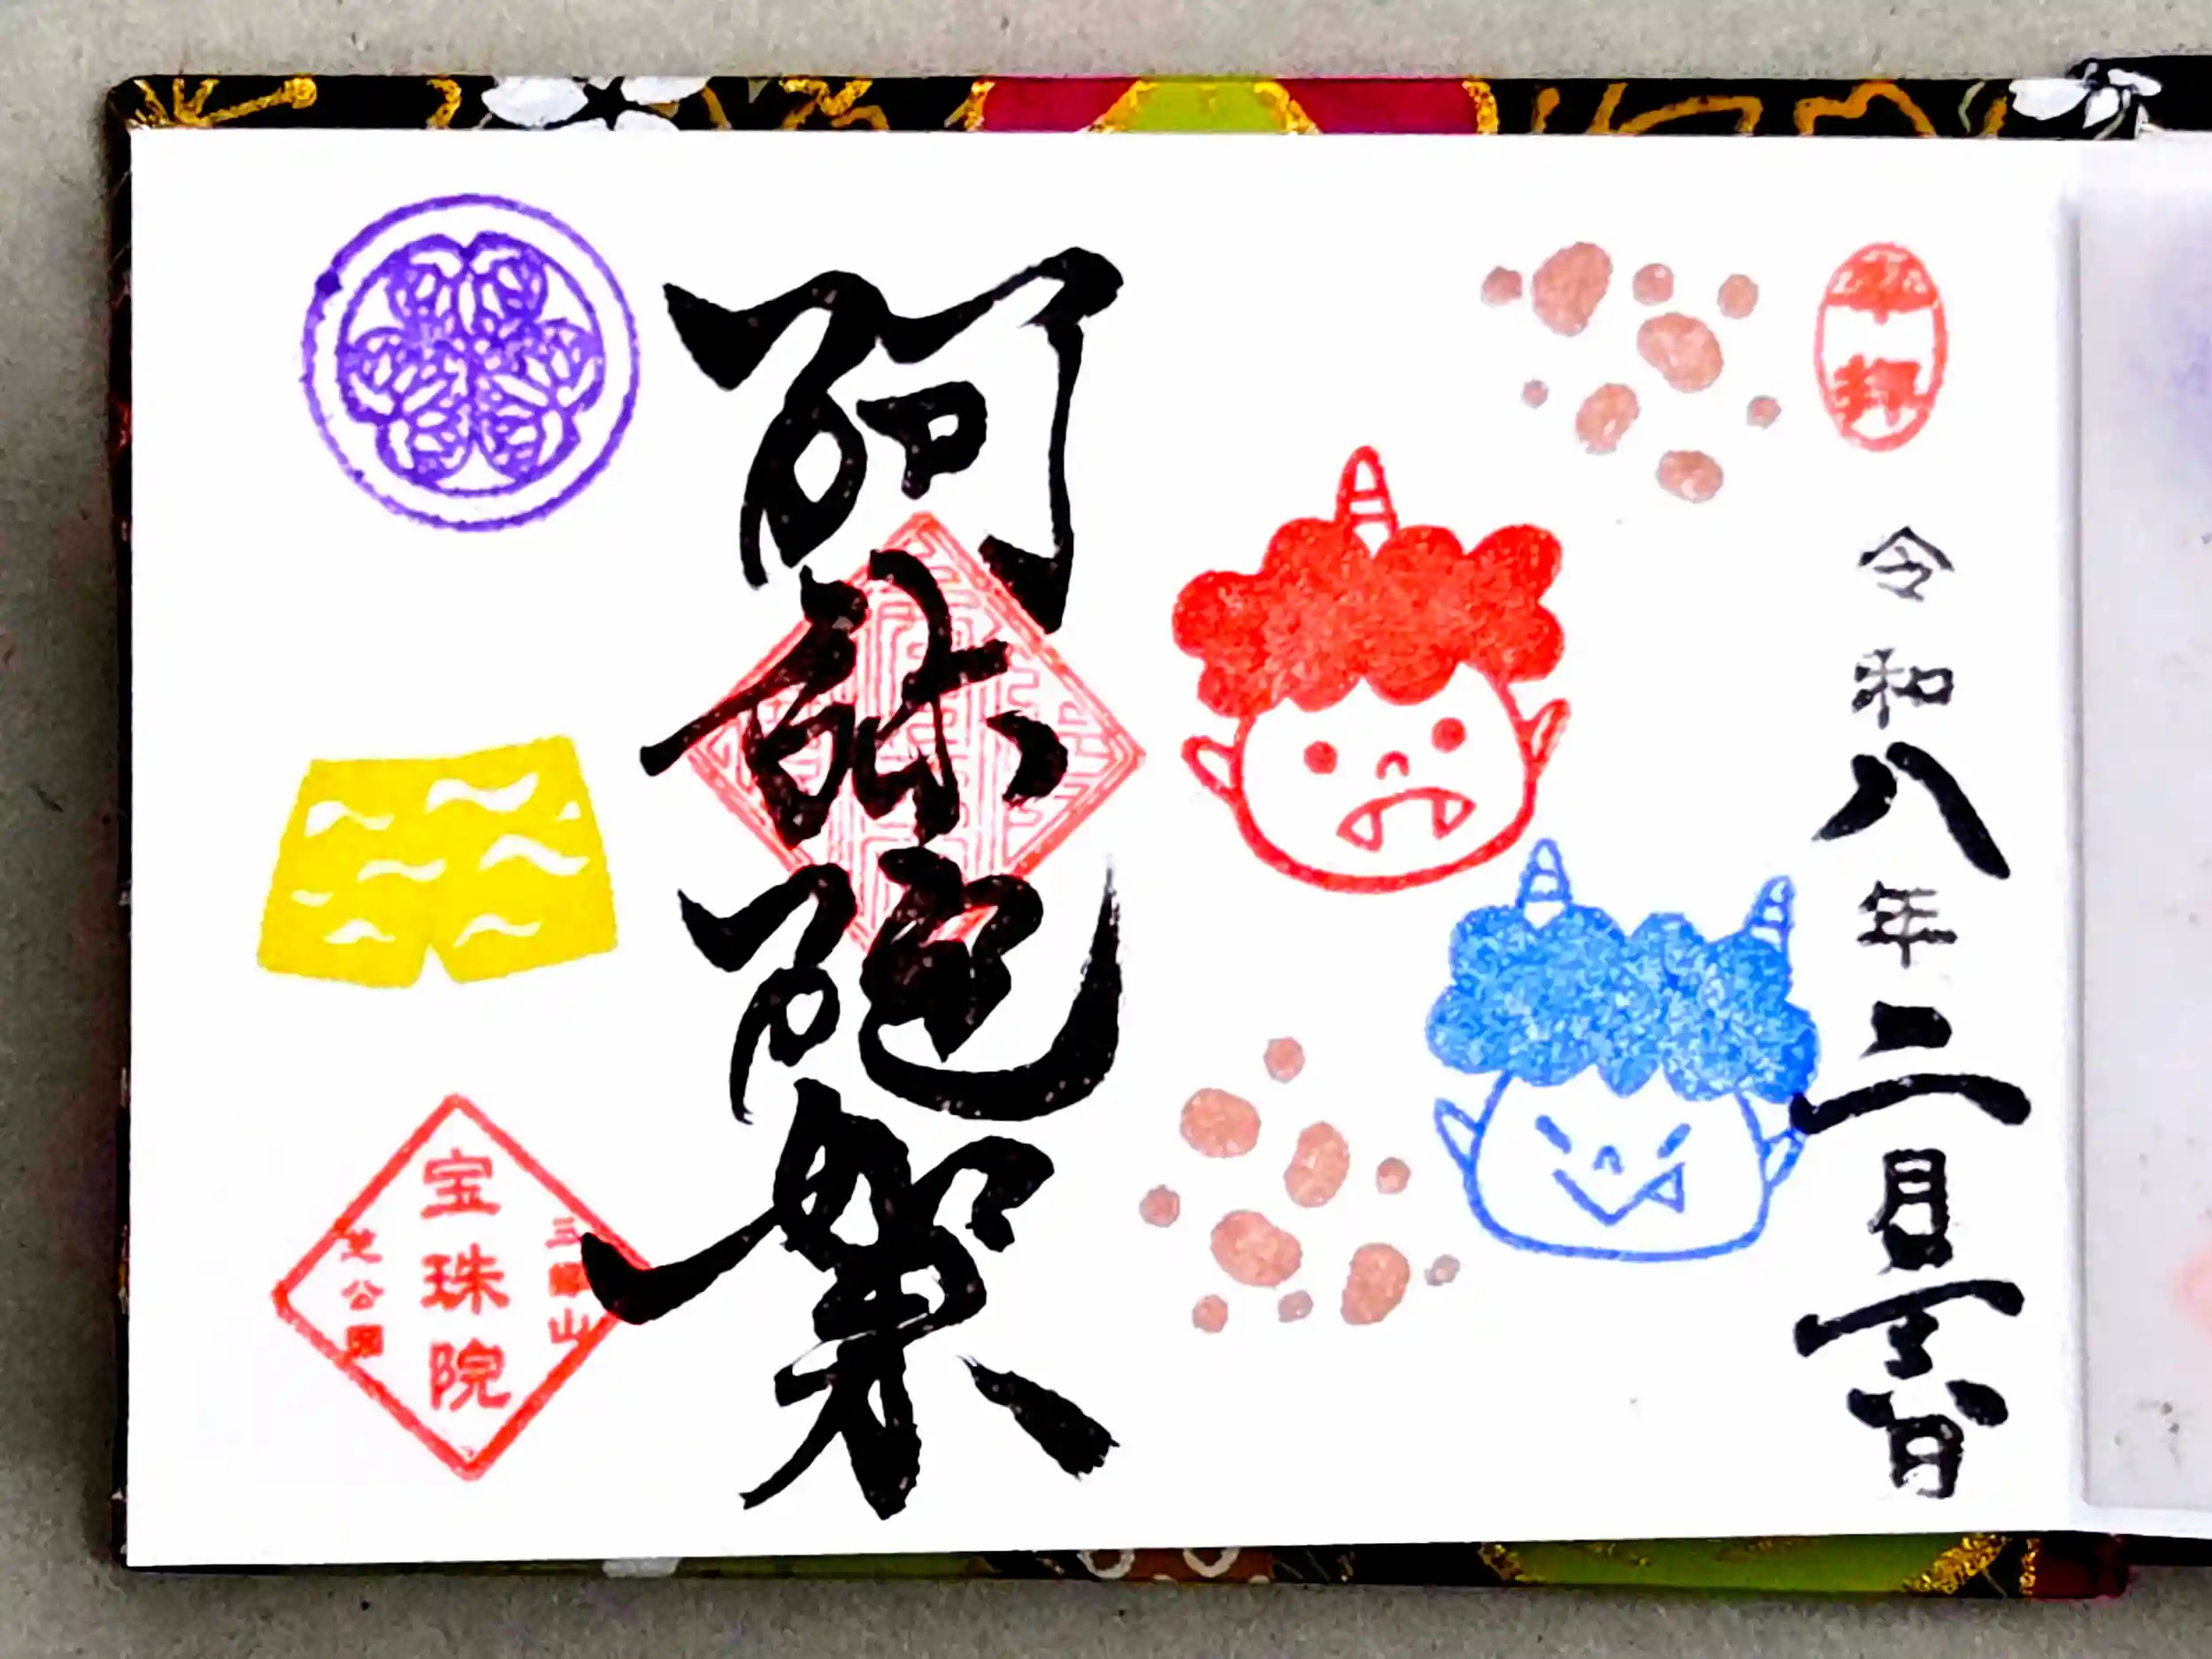 奉拝
令和八年二月
阿弥陀如来
三縁山
宝珠院
芝公園